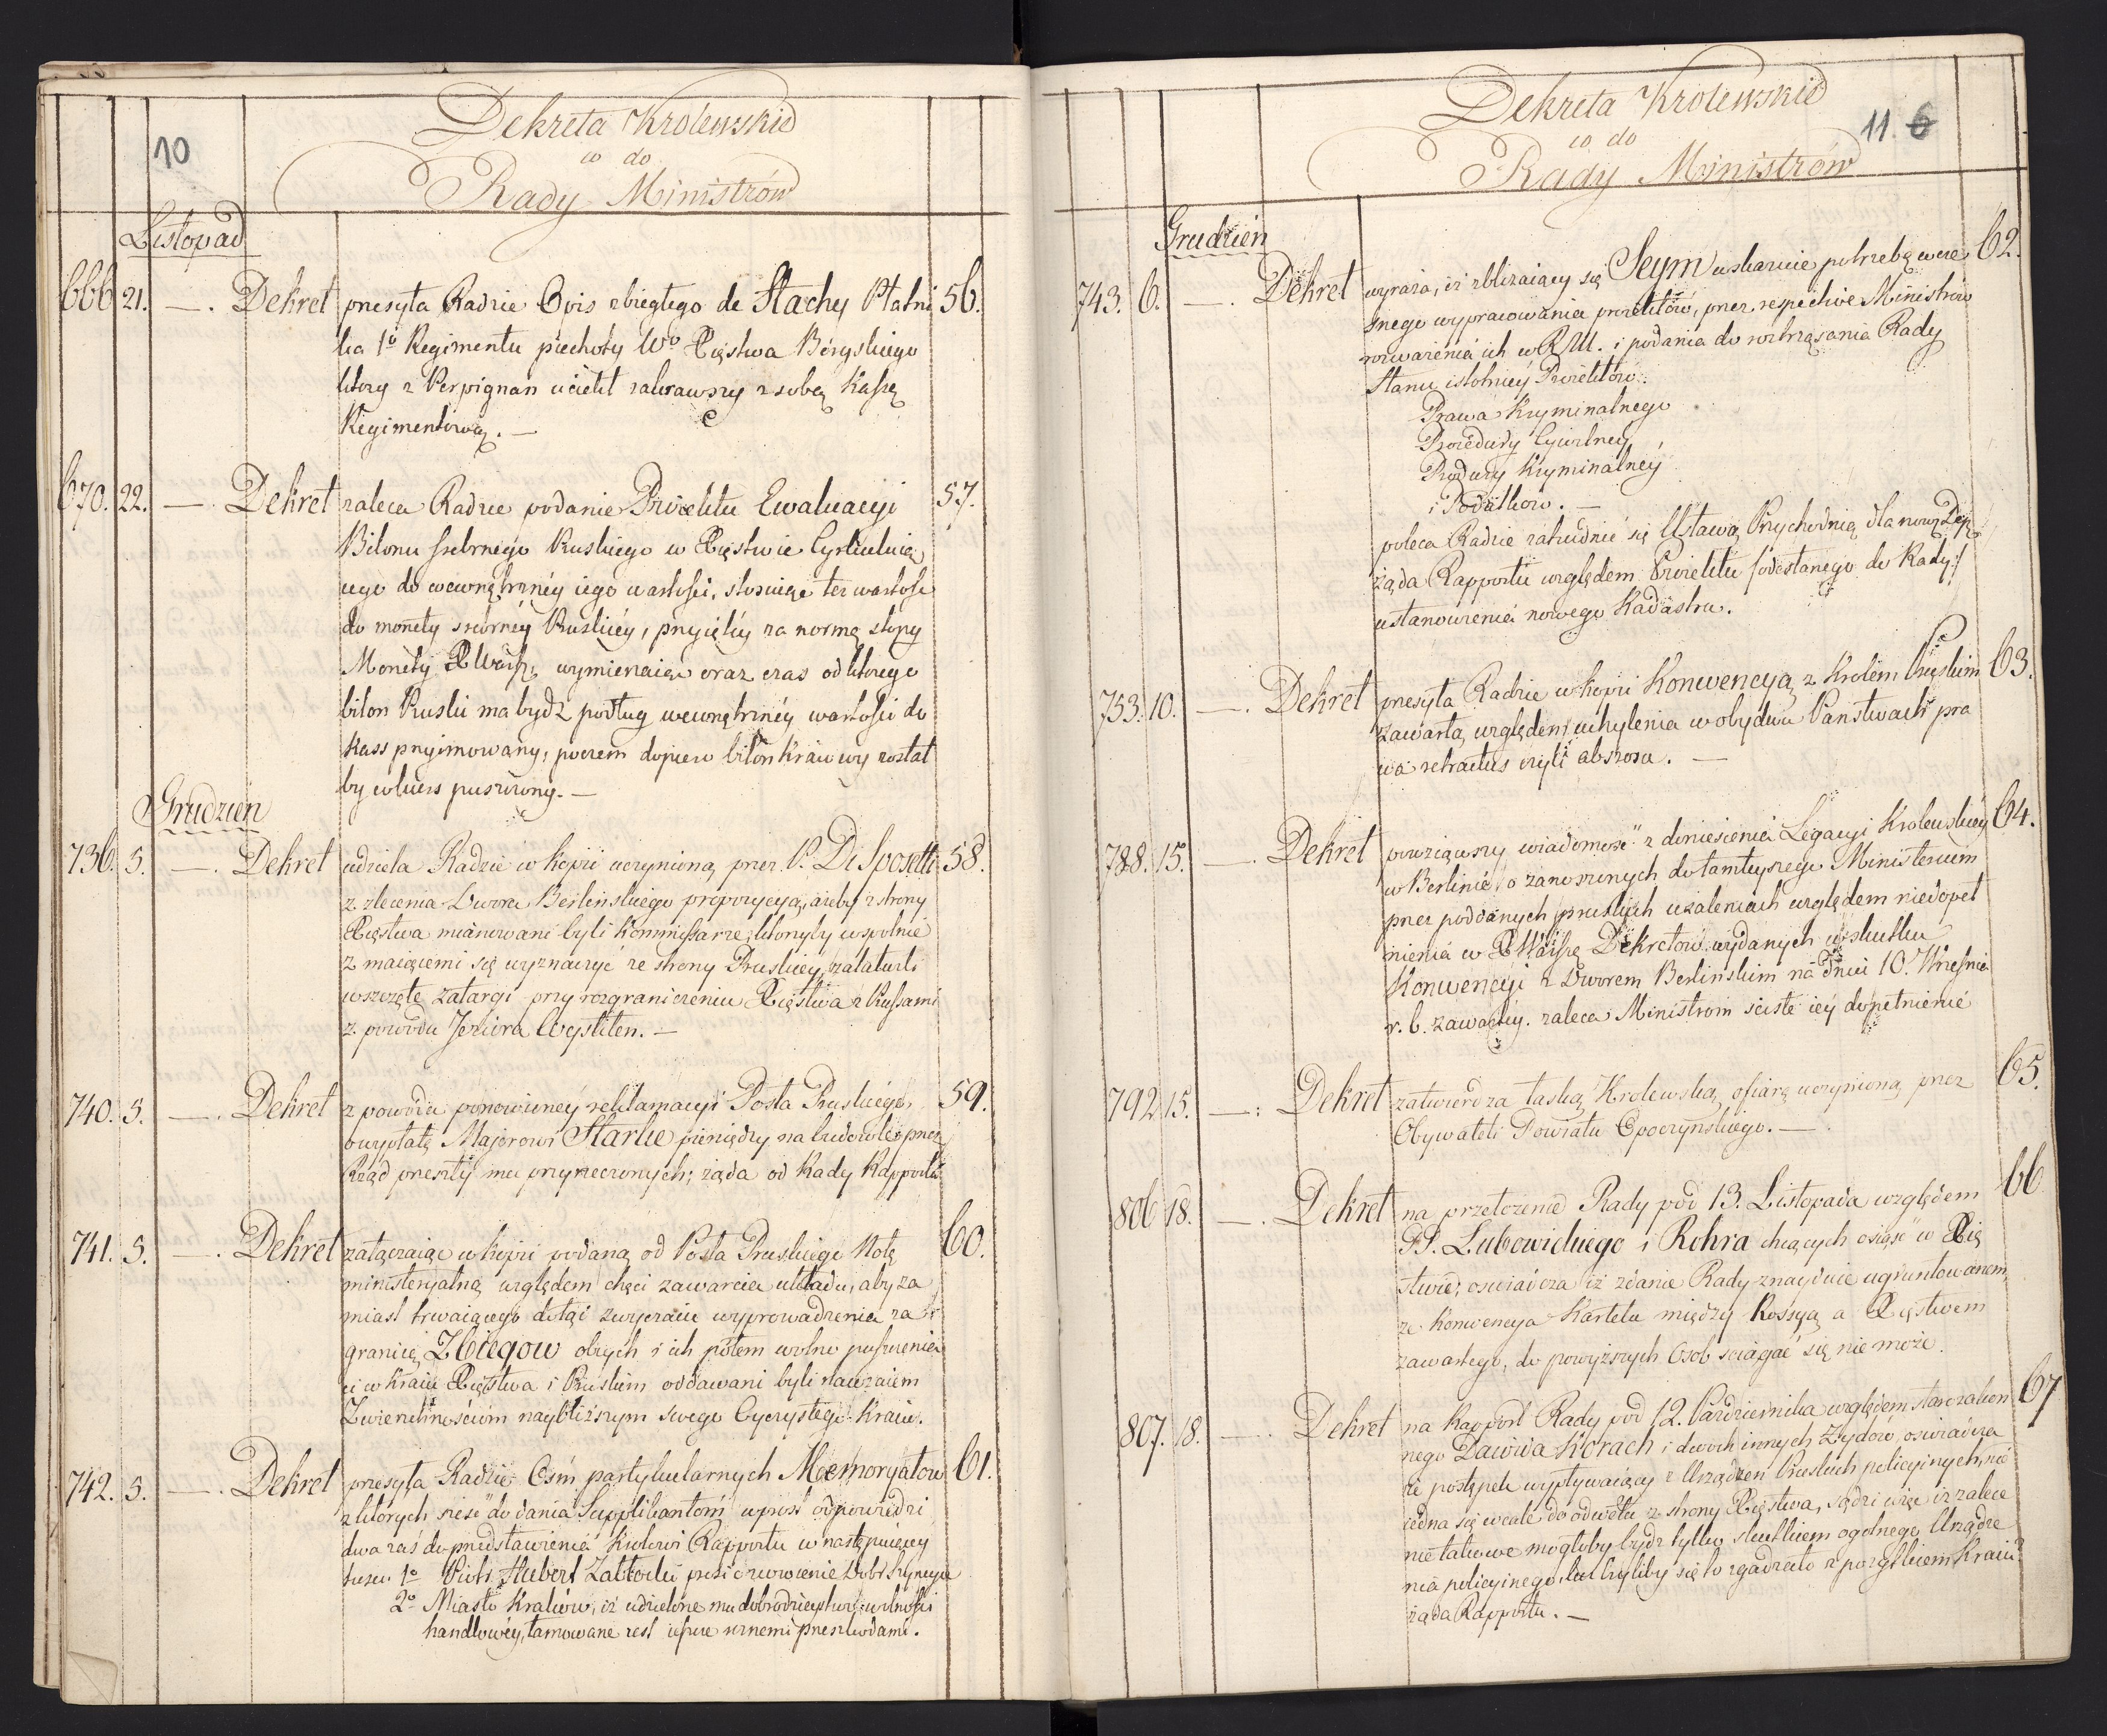 10
Dekreta Krolewskie
w do
Rady Ministrów
Listopad
666 21. —. Dekret przesyła Radzie Opis zbiegłego de Stachy Płatni 56.
ka 1º Regimentu piechoty Wº Xięstwa Bergskiego
ktory z Perpignan uciekł zabrawszy z sobą Kassę
Regimentową. —
670. 22. —. Dekret zaleca Radzie podanie Proiektu Ewaluacyi 57.
Bilonu srebrnego Pruskiego w Xięstwie Cyrkuluią
cego do wewnętrznéy iego wartości, stosuiąc też wartość
do monety srebrnéy Pruskiéy, przyiętéy za normę stopy
Monety XWarsz: wymieniaiąc oraz czas od ktorego
bilon Pruski ma bydź podług wewnętrznéy wartości do
Kass przyimowany, poczem dopiero bilon kraiowy został
by w kurs puszczony. —
Grudzień
736. 5. —. Dekret udziela Radzie w kopii uczynioną przez P. Di Sposetti 58.
z zlecenia Dworu Berlinskiego propozycyą, ażeby z strony
Xięstwa mianowani byli Kommissarze, ktorzyby wspolnie
z maiącemi się wyznaczyć ze strony Pruskiey, załatwili
wszczęte zatargi przy rozgraniczeniu Xięstwa z Prussami
z powodu Jeziora Wysztiten. —
740. 5. —. Dekret z powodu ponowionéy reklamacyi Posła Pruskiégo 59.
o wypłatę Majorowi Starke pieniędzy na budowle przez
Rząd przeszły mu przyrzeczonych; żąda od Rady Rapportu
741. 5. —. Dekret załączaiąc w kopii podaną od Posła Pruskiego Notę 60.
ministeryalną względem chęci zawarcia układu, aby za
miast trwaiącego dotąd zwyczaiu wyprowadzenia za
granicę Zbiegow obcych i ich potem wolno puszczenia
ci w kraiu Xięstwa i Pruskim oddawani byli nawzaiem
Zwierzchnościom naybliższym swego Oyczystego Kraiu.
742. 5. —. Dekret przesyła Radzie Ośm partykularnych Memoryałow 61.
z ktorych sześć do dania Supplikantom wprost odpowiedzi
dwa zaś do przedstawienia Krolowi Rapportu w następuiącey
treści 1º Piotr Hubert Zabłocki prosi o zwrocenie Dobr Szyneyce
2º Miasto Krakow, iż udzielone mu dobrodzieystwo wolności
handlowéy, tamowane iest ieszcze roznemi przeszkodami.
11. 6
Dekreta Krolewskie
w do
Rady Ministrów
Grudzień
743. 6. —. Dekret wyraża, iż zbliżaiący się Seym wskazuie potrzebę wcze 62.
snego wypracowania proiektów, przez respective Ministrow
rozważenia ich w R M. i podania do roztrząsania Rady
Stanu istotniey Proiektów:
Prawa Kryminalnego
Procedury Cywilney,
Produry Kryminalney
i Podatkow. —
poleca Radzie zatrudnić się Ustawą Przychodnią dla nowych Dep:
żąda Rapportu względem Proiektu /odesłanego do Rady:/
ustanowienia nowego Kadastru.
753. 10. —. Dekret przesyła Radzie w kopii Konwencyą z Krolem Pruskim 63.
zawartą względem uchylenia w obydwu Panstwach pra
wa retractus czyli abszosu. —
788. 15. —. Dekret powziąwszy wiadomość z doniesienia Legacyi Krolewskiéy 64.
w Berlinie, o zanoszonych do tamteyszego Ministerium
przez poddanych pruskich użaleniach względem niedopeł
nienia w XWarsz: Dekretow wydanych w skutku
Konwencyi z Dworem Berlinskim na dniu 10. Wrześnie
r. b. zawartéy. zaleca Ministrom ścisłe iéy dopełnienie
792 15. —: Dekret zatwierdza łaską Krolewską ofiarę uczynioną przez 65.
Obywateli Powiatu Opoczynskiego. —
806 18. —. Dekret na przełożenie Rady pod 13. Listopada względem 66
PP. Lubowickiego i Rohra chcących osiąść w Xię
stwie; oświadcza iż zdanie Rady znayduie ugruntowanem,
że Konwencya Kartelu między Rossyą a Xięstwem
zawartego, do powyższych Osob sciągać się nie może.
807. 18. —. Dekret na Rapport Rady pod 12. Pazdziernika względem starozakon 67
nego Dawida Korach i dwoch innych Żydów, oświadcza
że postępek wypływaiący z Urządzeń Pruskich policyinych, nie
iedna się wcale do odwetu z strony Xięstwa, sądzi więc iż zalece
nie takowe mogłoby bydź tylko skutkiem ogolnego Urządze
nia policyinego lecz czyliby się to zgadzało z pożytkiem Kraiu?
żąda Rapportu. —